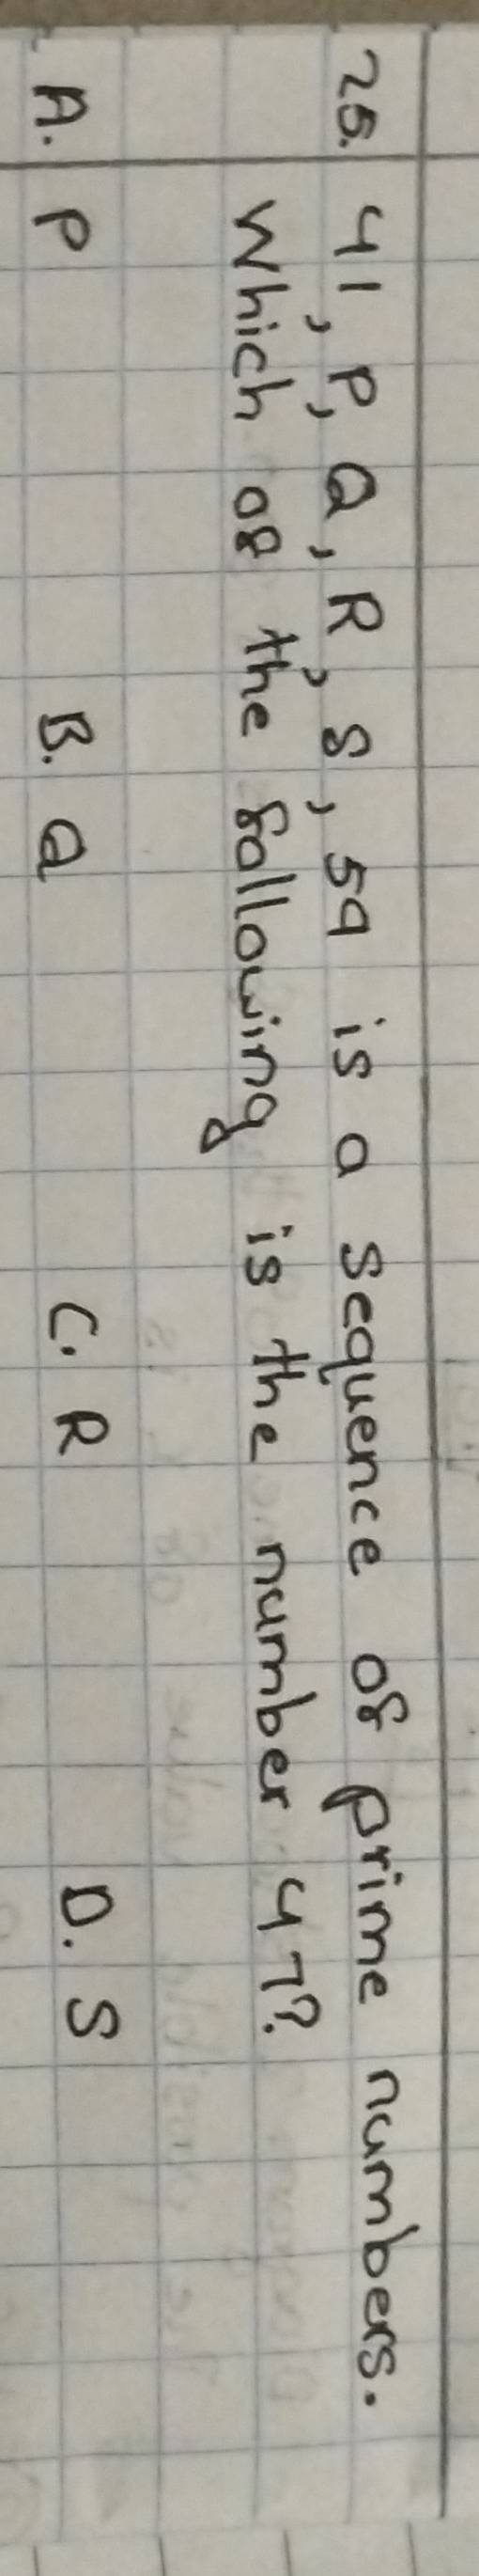 25. 41, P, Q, R, S, 59 is a sequence of prime numbers.
Which of the following is the number 47?
A. P B. Q C. R D. S